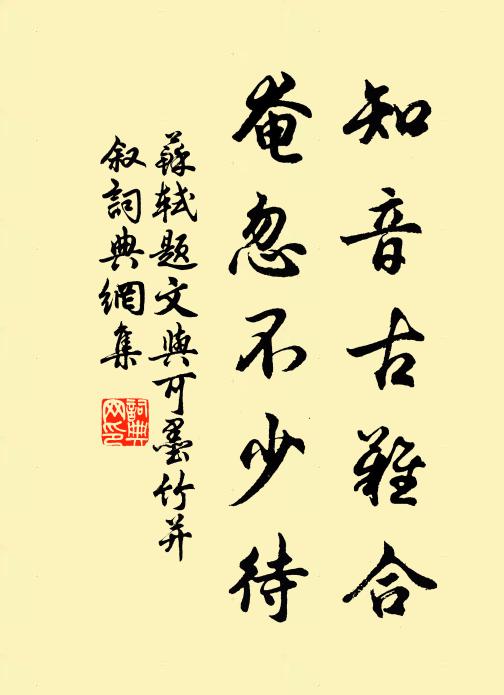 知音古難合
奄忽不少待
蘇軾題文與可墨竹并
叙詞典網集
詞典網印